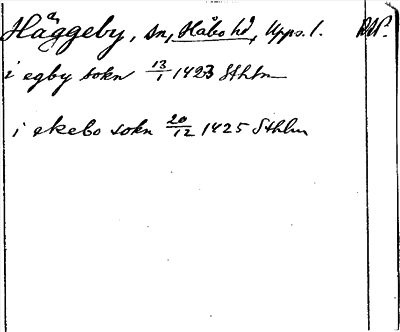 Häggeby, sn, Håbo hd, Upps. l. RAP.
i egby sokn 13/1 1423 Sthlm
i ekebo sokn 20/12 1425 Sthlm